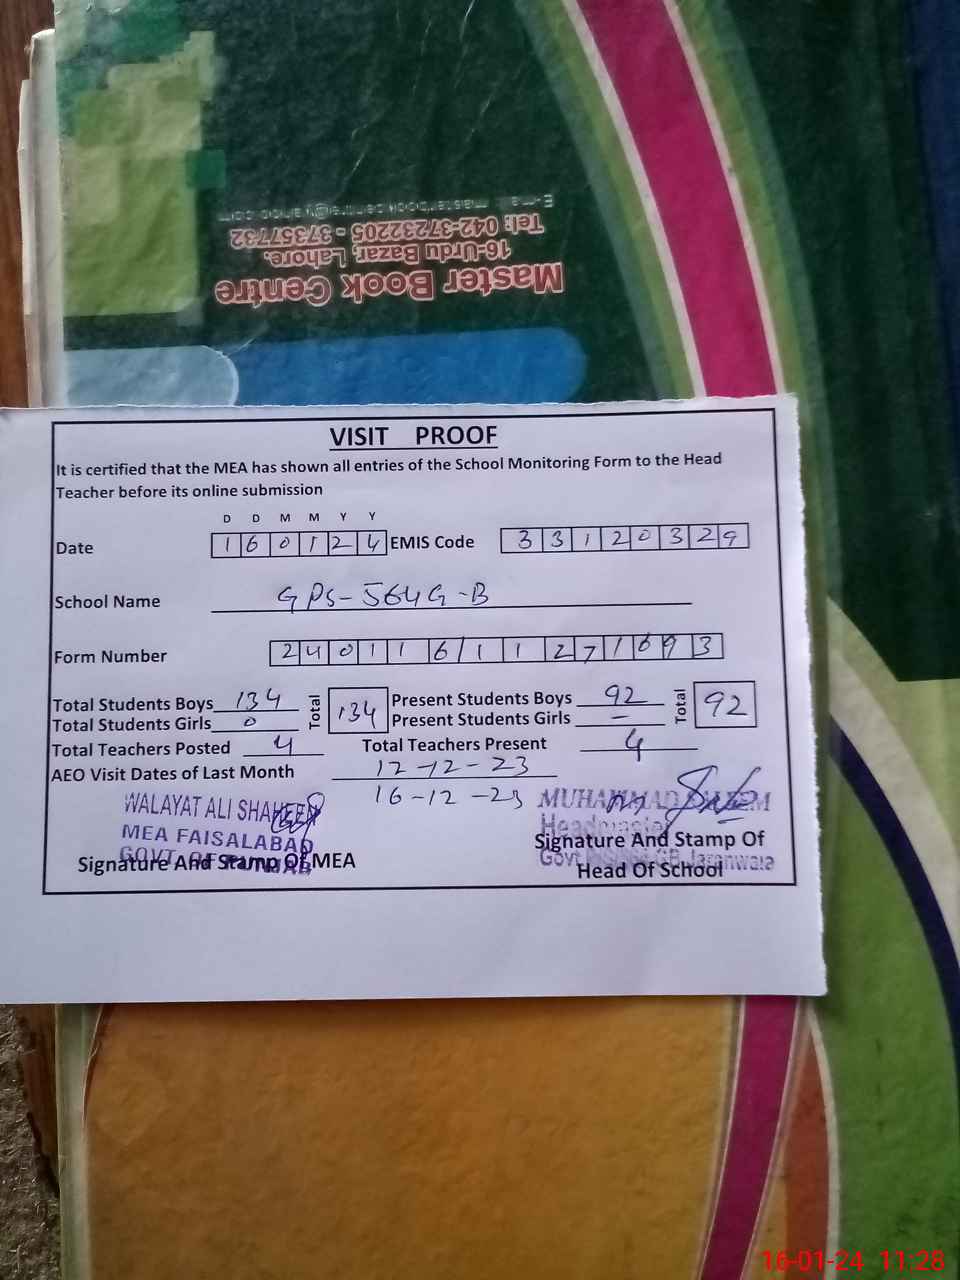 E-mail: masterbookcentre@yahoo.com
Tel: 042-37232205 - 37357732
16-Urdu Bazar, Lahore.
Master Book Centre
VISIT PROOF
It is certified that the MEA has shown all entries of the School Monitoring Form to the Head
Teacher before its online submission
D D M M Y Y
Date 1 6 0 1 2 4 EMIS Code 3 3 1 2 0 3 2 9
School Name GPS-564G-B
Form Number 2 4 0 1 1 6 / 1 1 2 7 1 6 9 3
Total Students Boys 134 Total 134 Present Students Boys 92 Total 92
Total Students Girls 0 Present Students Girls —
Total Teachers Posted 4 Total Teachers Present 4
AEO Visit Dates of Last Month 12-12-23
16-12-23
WALAYAT ALI SHAHEEN
MEA FAISALABAD
GOVT. OF PUNJAB
Signature And Stamp Of MEA
MUHAMMAD
Headmaster
Signature And Stamp Of
Govt Jaranwala
Head Of School
16-01-24 11:28